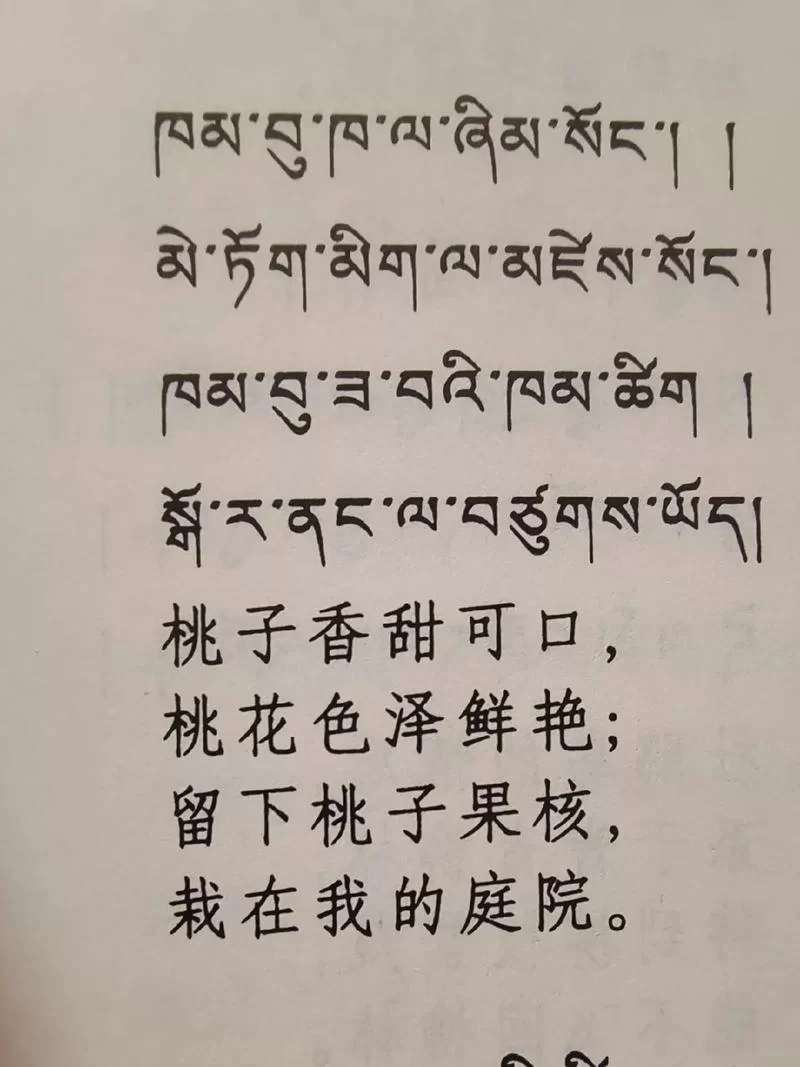 ཁམ་བུ་ཁ་ལ་ཞིམ་སོང་། །
མེ་ཏོག་མིག་ལ་མཛེས་སོང་།
ཁམ་བུ་ཟ་བའི་ཁམ་ཚིག །
སྒོ་ར་ནང་ལ་བཙུགས་ཡོད།
桃子香甜可口，
桃花色泽鲜艳；
留下桃子果核，
栽在我的庭院。